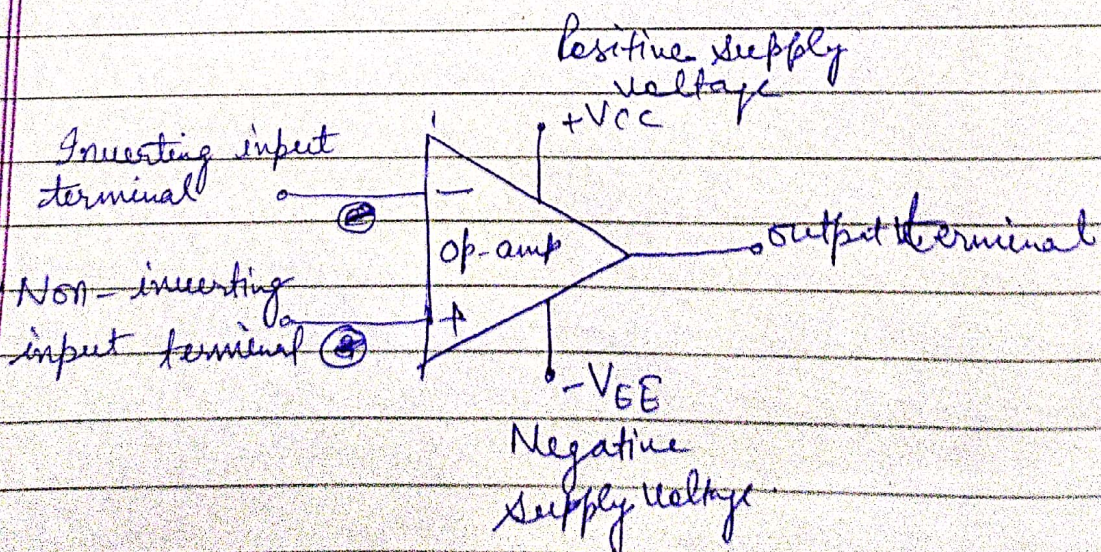 Positive supply
voltage
+VCC
Inverting input
terminal
-
op-amp
output terminal
Non-inverting
input terminal
+
-VEE
Negative
supply voltage.